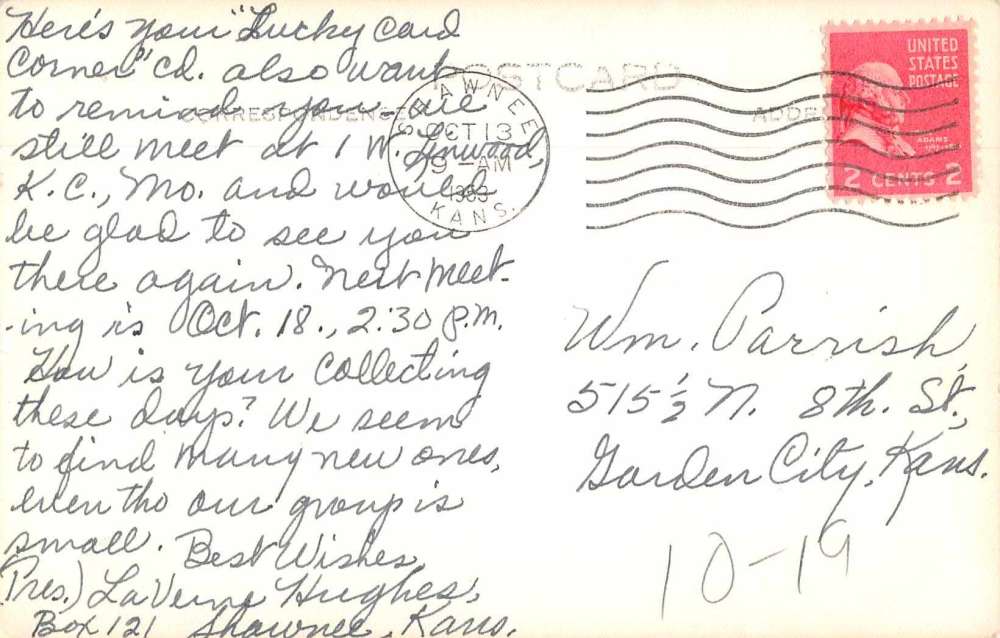 Here's your "Lucky Card
Corner" cd. also want
to remind you we
still meet at 1 W. Linwood,
K.C., Mo. and would
be glad to see you
there again. Next meet-
-ing is Oct. 18., 2:30 P.M.
How is your collecting
these days? We seem
to find many new ones,
even tho our group is
small. Best Wishes,
(Pres.) LaVerne Hughes,
Box 121 Shawnee, Kans.
POSTCARD
CORRESPONDENCE
SHAWNEE
OCT 13
9 - AM
KANS.
UNITED
STATES
POSTAGE
2 CENTS 2
Wm. Parrish
515 1/2 N. 8th. St.,
Garden City, Kans.
10-19